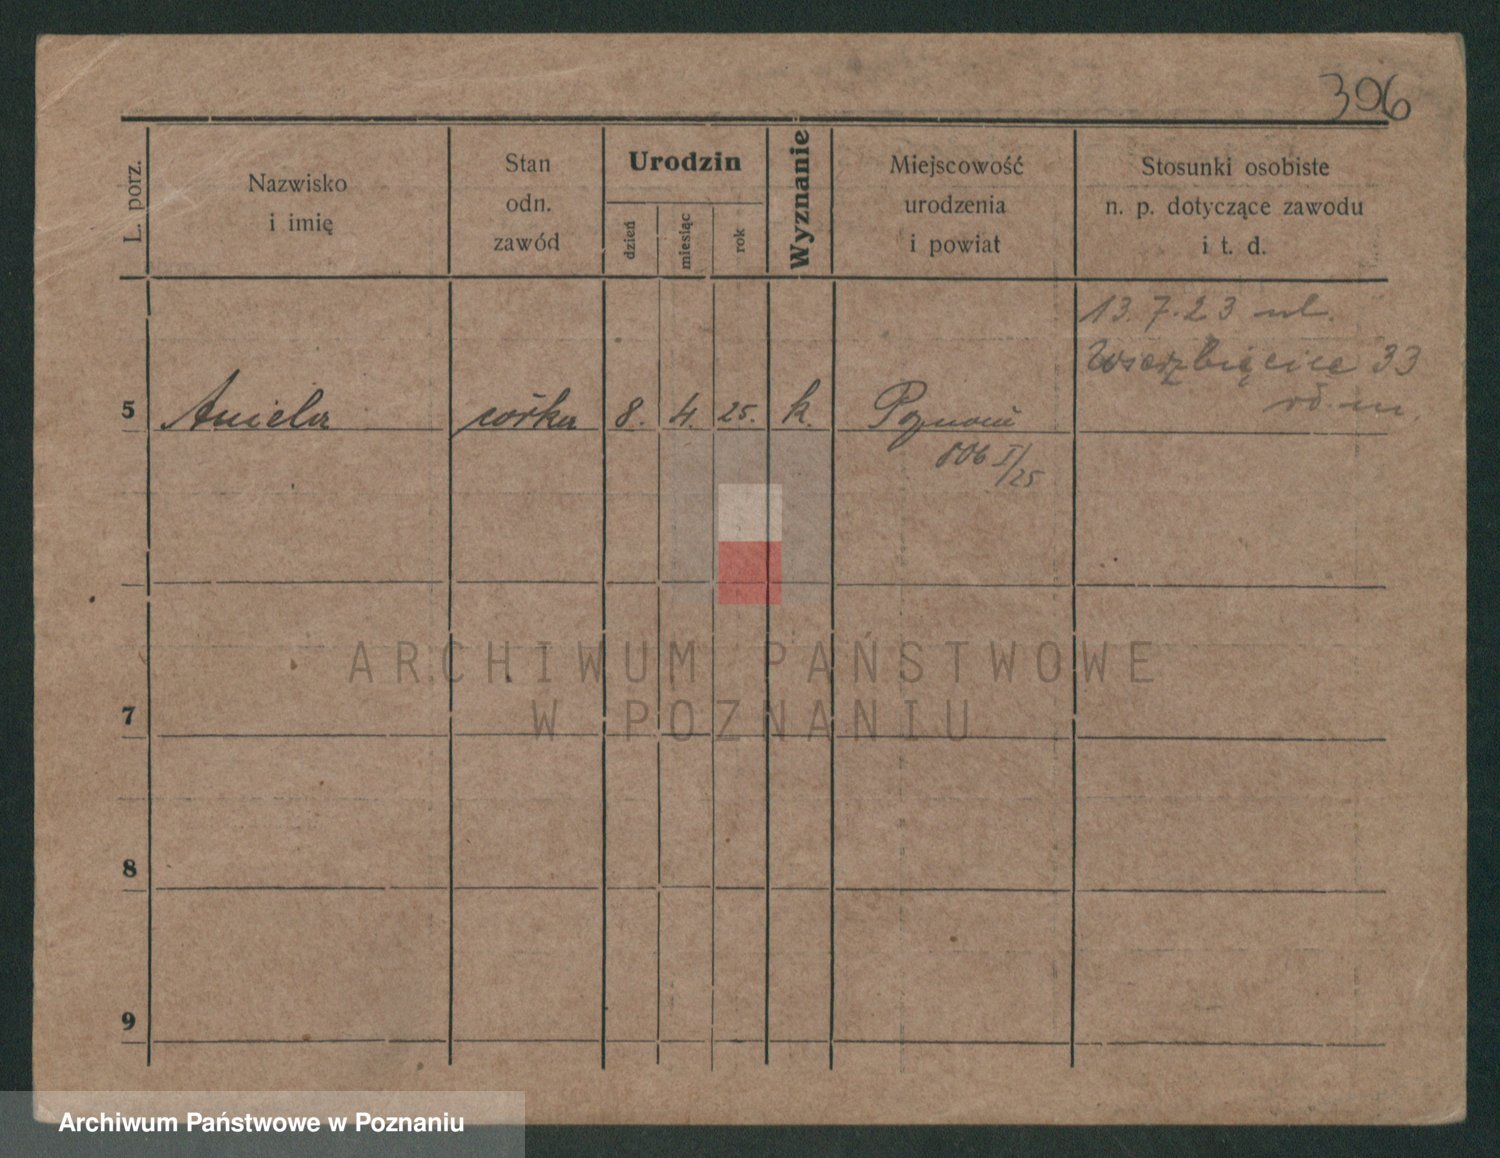 396
L. porz.
Nazwisko
i imię
Stan
odn.
zawód
Urodzin
dzień
miesiąc
rok
Wyznanie
Miejscowość
urodzenia
i powiat
Stosunki osobiste
n. p. dotyczące zawodu
i t. d.
13.7.23 ul.
Wierzbięcice 33
5 Aniela córka 8. 4. 25. k. Poznań
806 I/25
7
8
9
ARCHIWUM PAŃSTWOWE
W POZNANIU
Archiwum Państwowe w Poznaniu